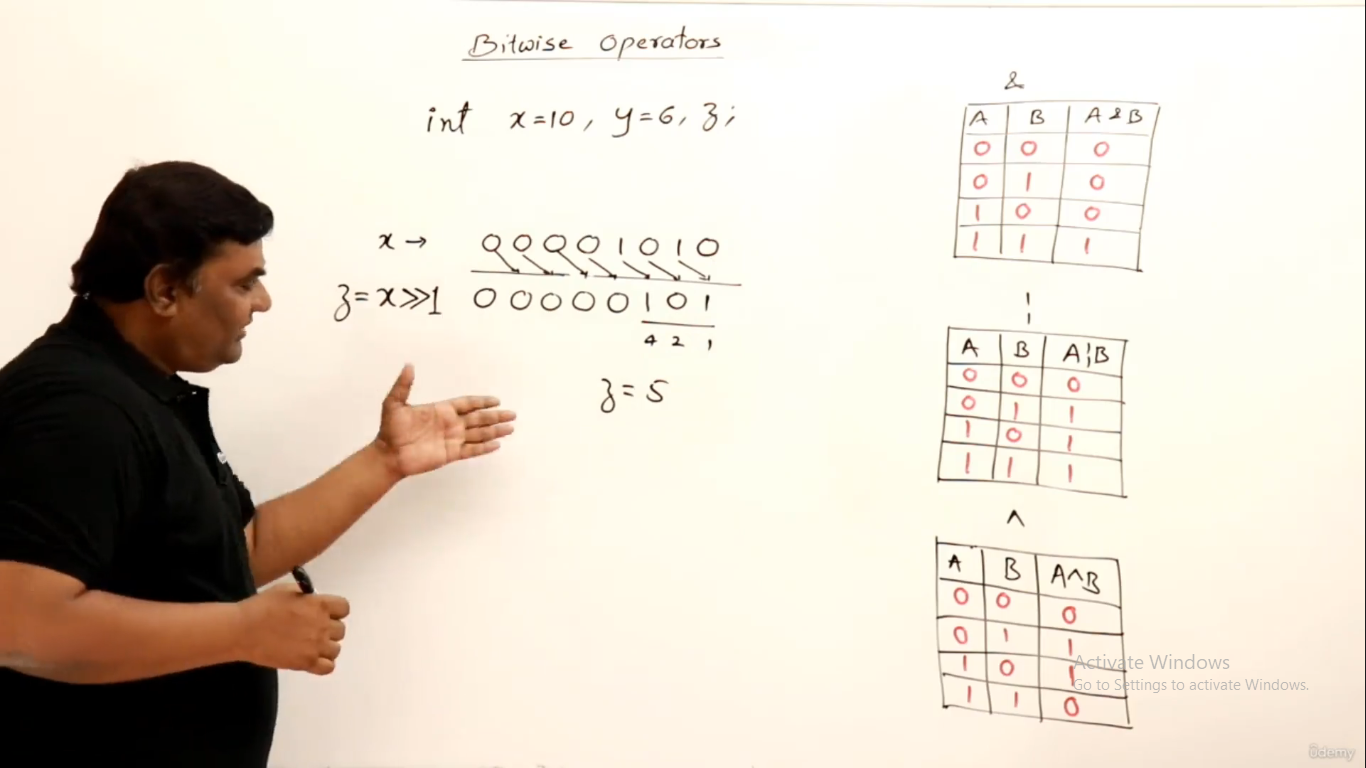 Bitwise Operators
int x=10, y=6, z;
x → 0 0 0 0 1 0 1 0
z = x>>1 0 0 0 0 0 1 0 1
4 2 1
z = 5
&
A B A & B
0 0 0
0 1 0
1 0 0
1 1 1
¦
A B A¦B
0 0 0
0 1 1
1 0 1
1 1 1
^
A B A^B
0 0 0
0 1 1
1 0 1
1 1 0
Activate Windows
Go to Settings to activate Windows.
ûdemy